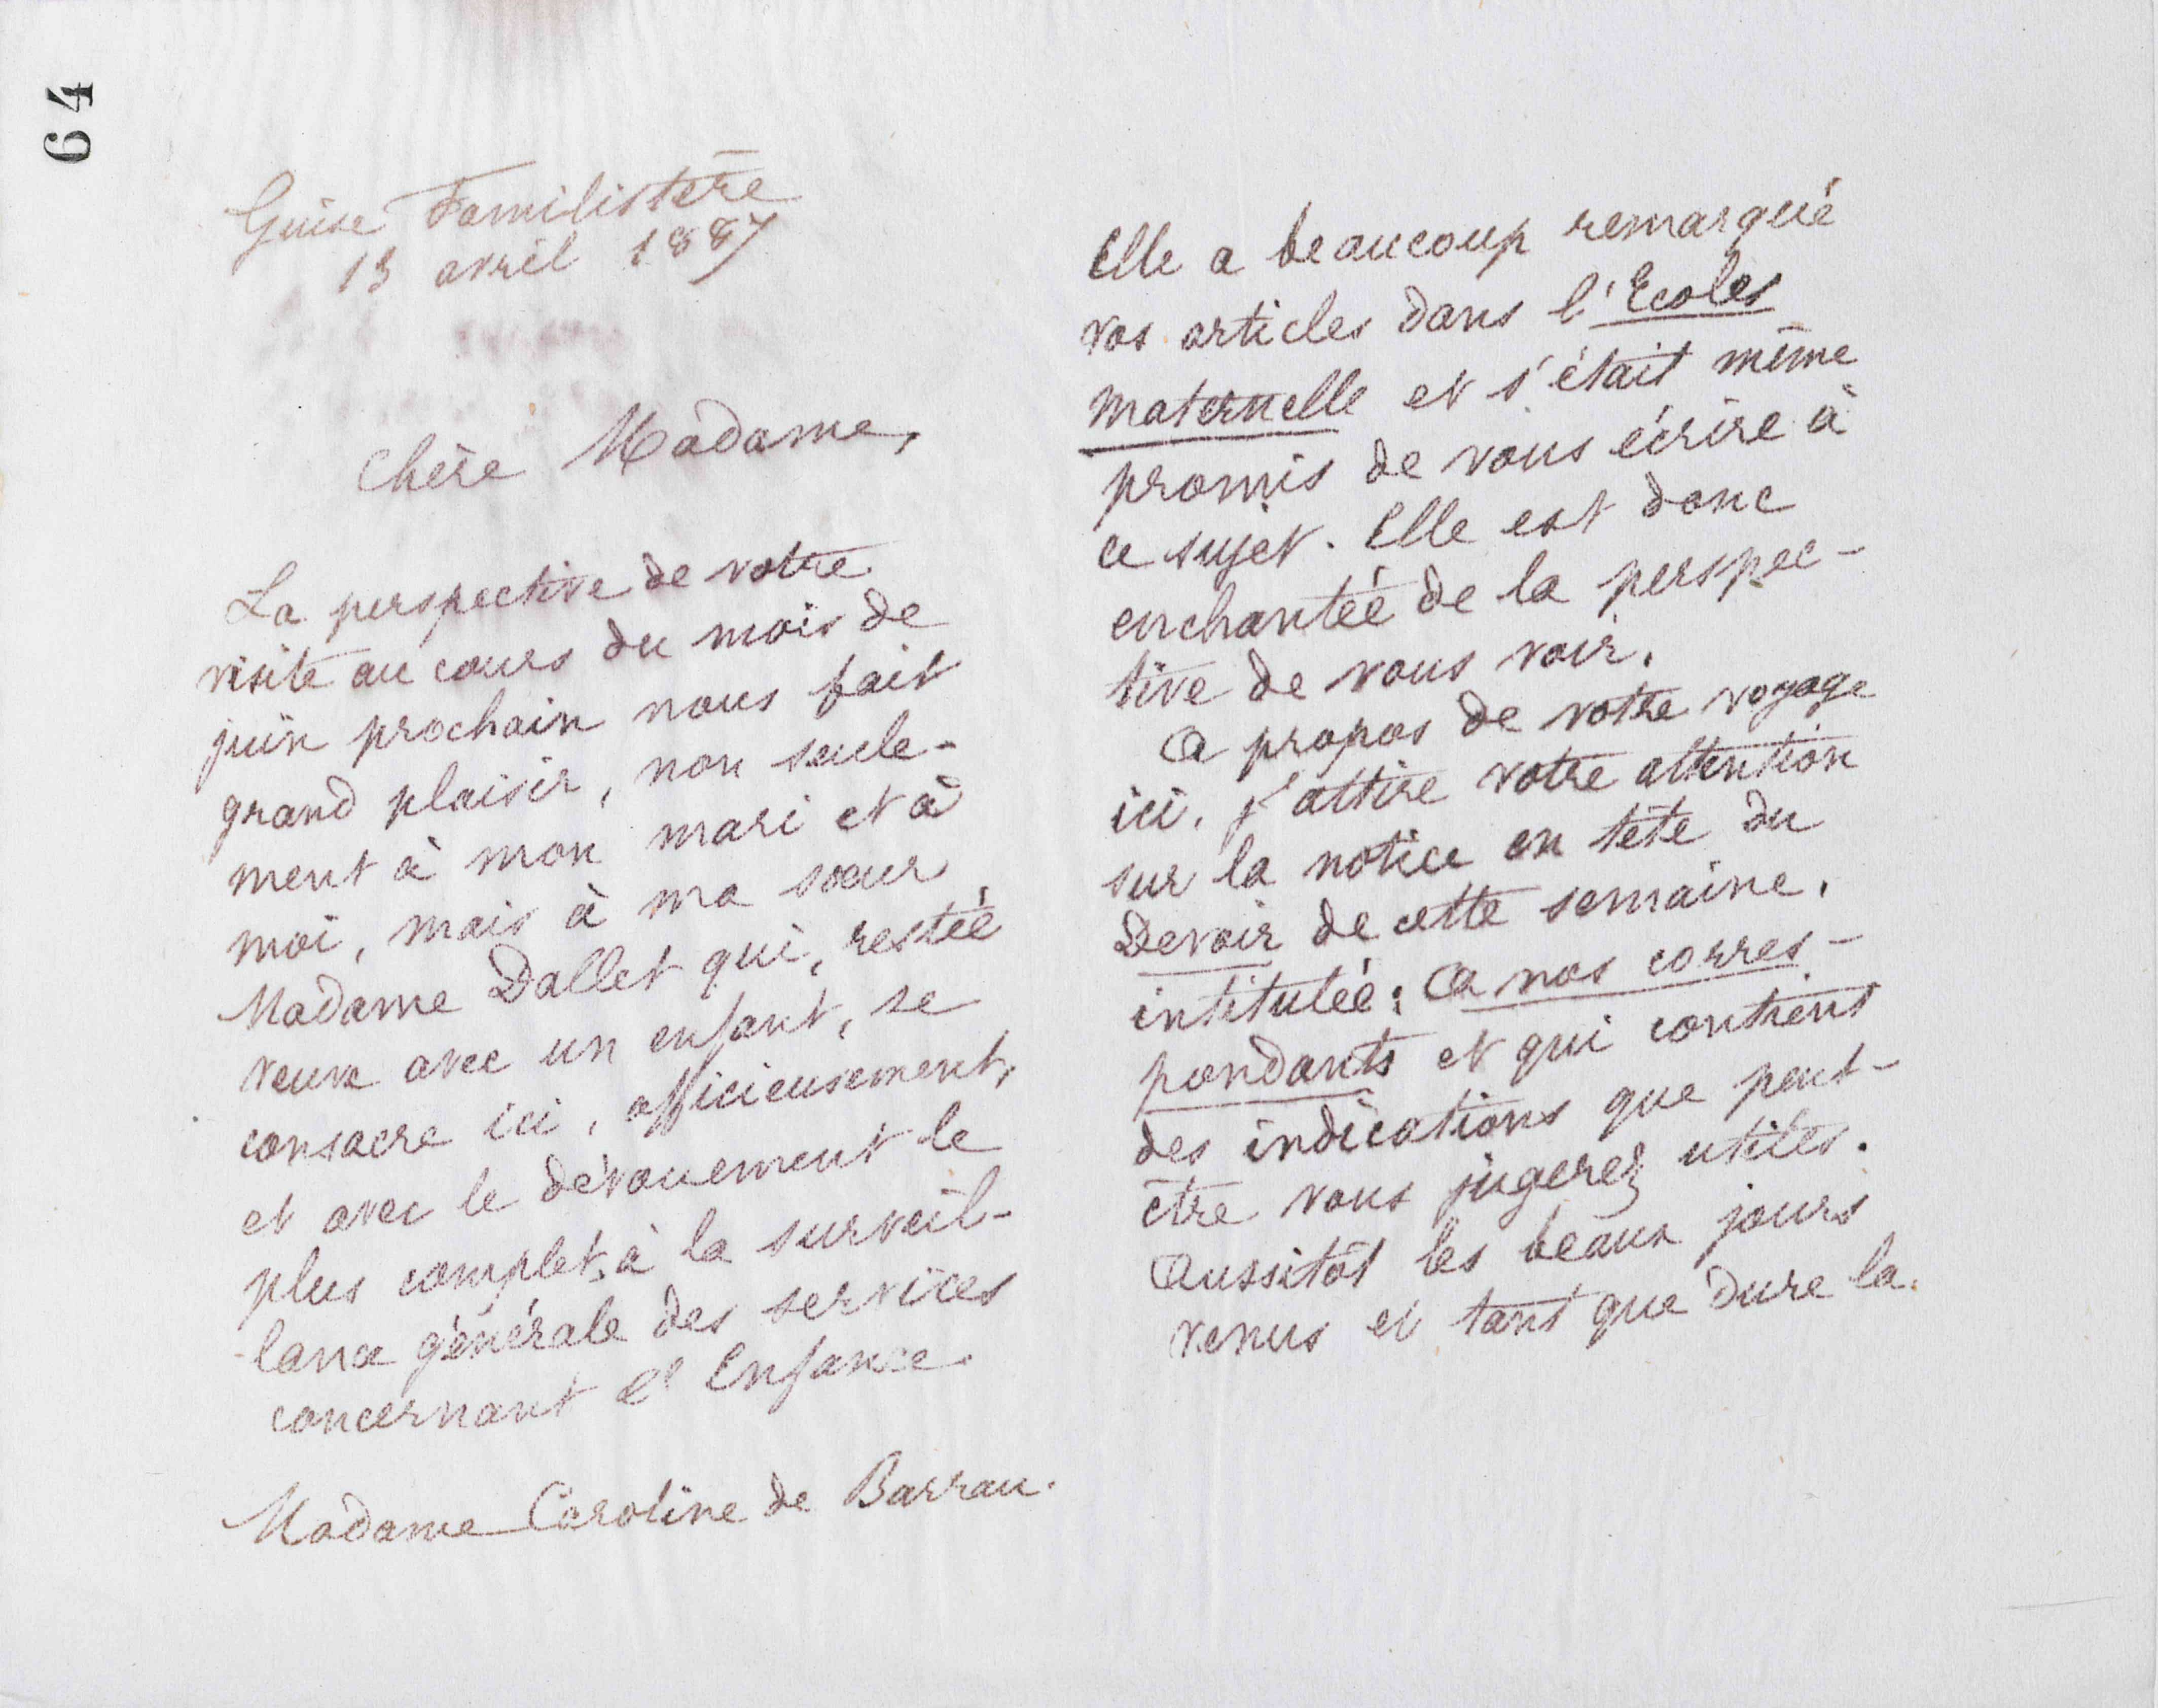 64
Guise Familistère
13 avril 1887
Chère Madame,
La perspective de votre
visite au cours du mois de
juin prochain nous fait
grand plaisir, non seule-
ment à mon mari et à
moi, mais à ma sœur
Madame Dallet qui, restée
veuve avec un enfant, se
consacre ici, officieusement,
et avec le dévouement le
plus complet, à la surveil-
lance générale des services
concernant l'Enfance.
Madame Caroline de Barrau.
Elle a beaucoup remarqué
vos articles dans l'Ecoles
maternelle et s'était même
promis de vous écrire à
ce sujet. Elle est donc
enchantée de la perspec-
tive de vous voir.
A propos de votre voyage
ici, j'attire votre attention
sur la notice en tête du
Devoir de cette semaine,
intitulée: A nos corres-
pondants et qui contient
des indications que peut-
être vous jugerez utiles.
Aussitôt les beaux jours
venus et tant que dure la